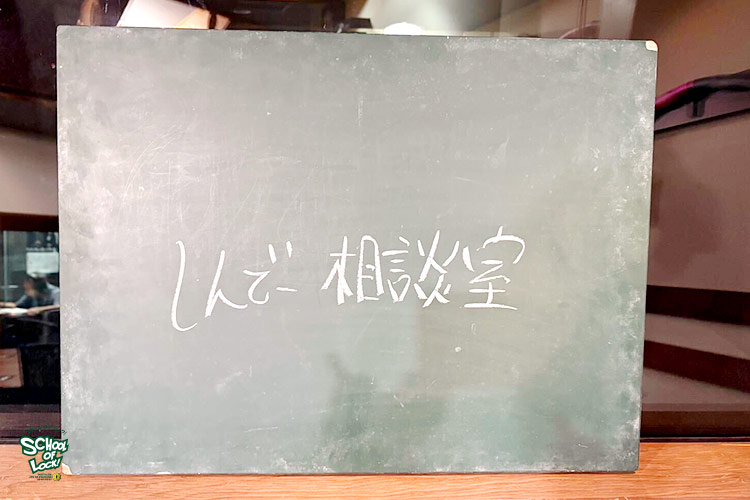 しんでー相談室
SCHOOL
OF
LOCK!